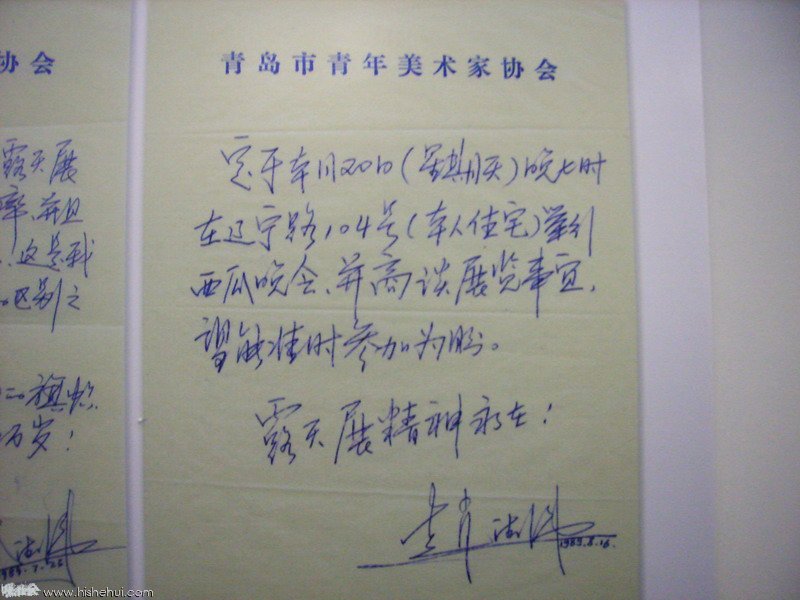 协会
露天展
率,并且
、这是我
区别之
旗帜
万岁!
1989.7.26
青岛市青年美术家协会
定于本月20日(星期天)晚七时
在辽宁路104号(本人住宅)举行
西瓜晚会、并商谈展览事宜,
望能准时参加为盼。
露天展精神永在!
1989.8.16.
www.hishehui.com